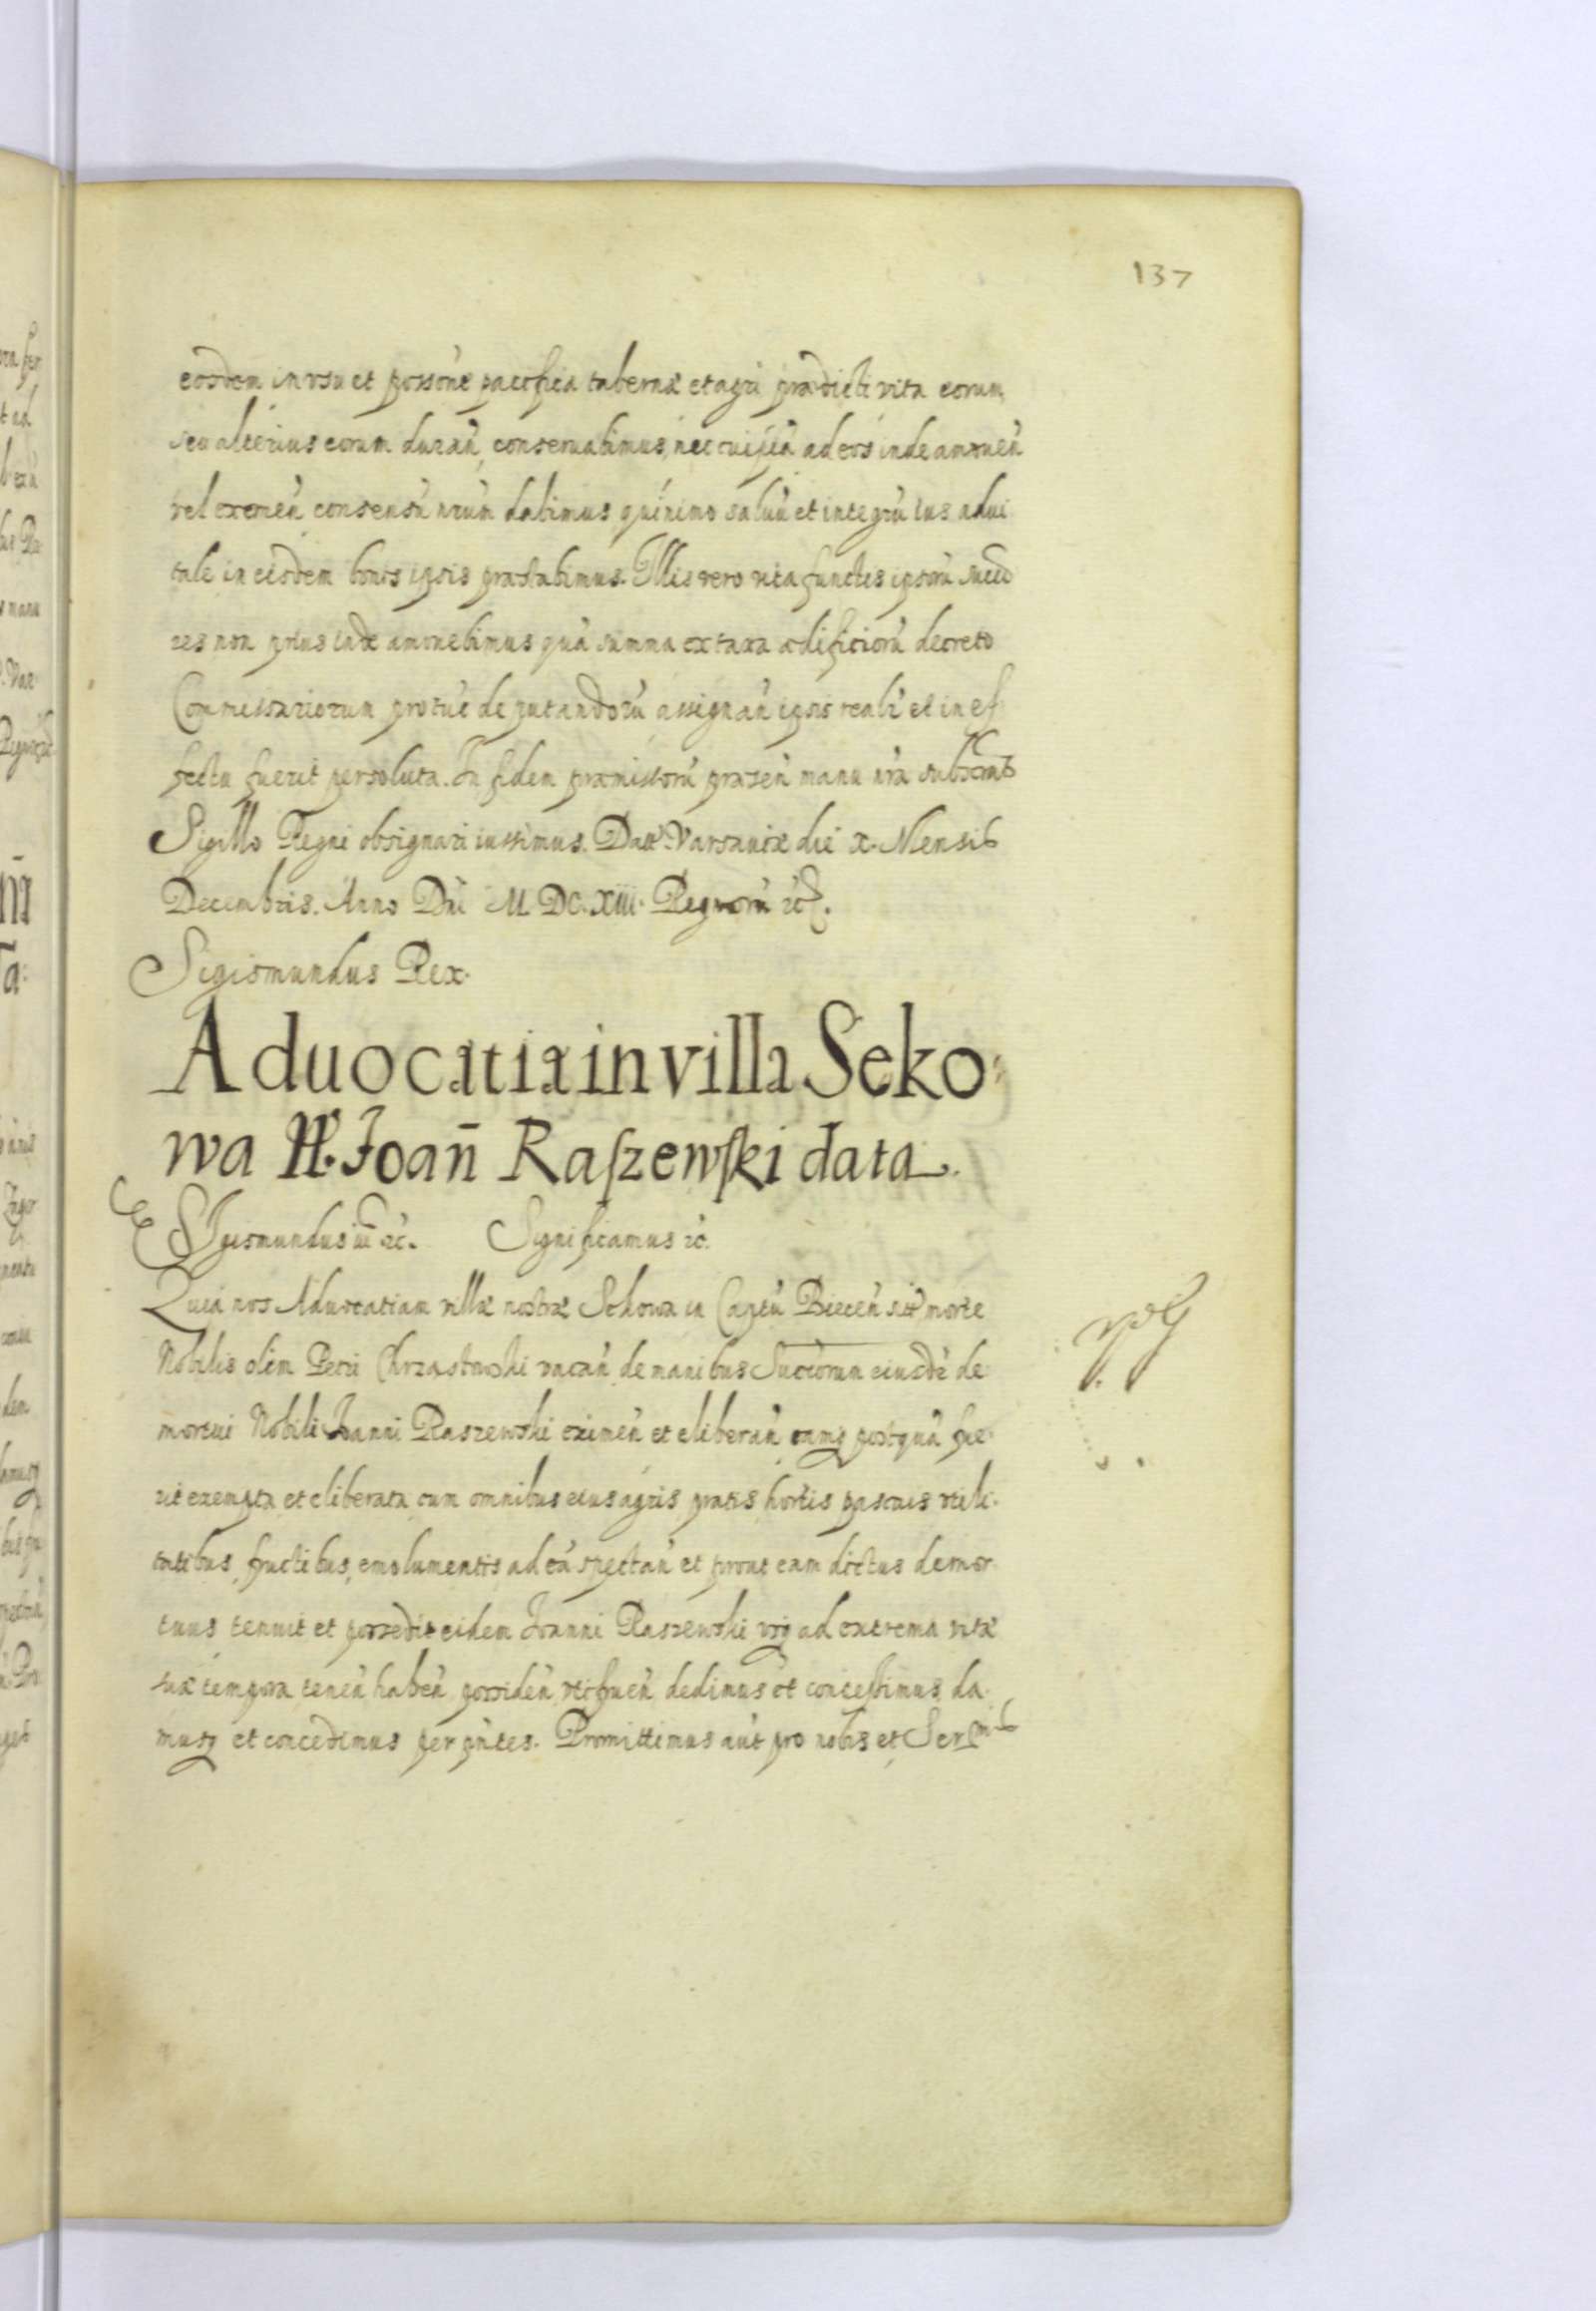 137
eosdem in vsu et possone pacifica tabernæ et agri prædicti vita eorum,
seu alterius eorum durań, conseruabimus, nec cuiꝗ́ ad eos inde amouen̄
vel eximen̄ consensū nrum̄ dabimus quinimo saluū et integrū ius adui
tale in eisdem bonis ipsis præstabimus. Illis vero vita functis ipsorū succo
res non prius inde amouebimus quā summa ex taxa ædificiorū decreto
Commissariorum protūc deputandorū assignan̄ ipsis realr̄ et in ef
fectu fuerit persoluta. In fidem præmissorū præsen̄ manu nrā subscrās
Sigillo Regni obsignari iussimus. Datt. Varsauiæ die x. Mensis
Decembris. Anno Dnī M. DC. XIII. Regnorū ꝛc.
Sigismundus Rex.
Aduocatia in villa Seko:
wa N. Joan̄ Raſzewſki data.
SIgismundus iii ꝛc. Significamus ꝛc.
Quia nos Aduocatiam villæ nostræ Sekowa in Captū Biecen̄ sit̄ morte
Nobilis olim Petri Chrzastowski vacan̄ de manibus Succorum eiusdē de
mortui Nobili Ioanni Raszewski eximen̄ et eliberan̄ eamq̨ postquā fue
rit exempta et eliberata cum omnibus eius agris pratis hortis pascuis vtili
tatibus, fructibus, emolumentis ad eā spectan̄ et prout eam dictus demor
tuus tenuit et possedit eidem Ioanni Raszewski vsq̨ ad extrema vitæ
suæ tempora tenen̄ haben̄ possiden̄ vtifruen̄ dedimus et concessimus, da
musq̨ et concedimus per pn̄tes. Promittimus aūt pro nobis et Sermis